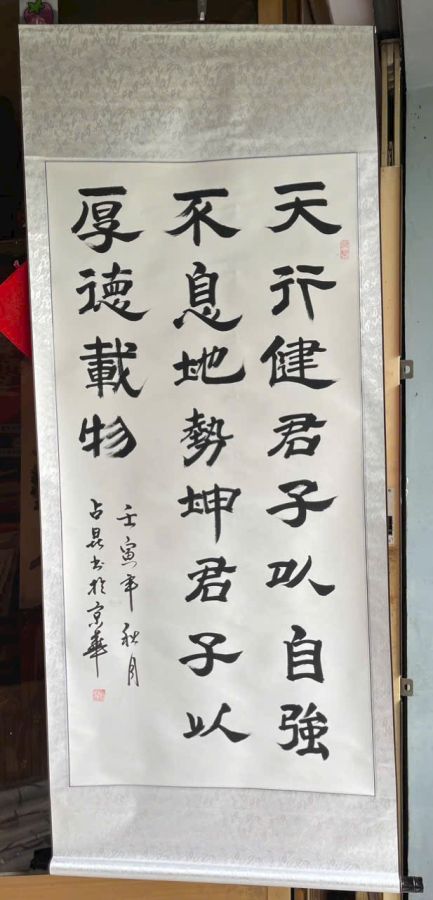 天行健君子以自強
不息地勢坤君子以
厚德載物
壬寅年秋月
占昆书於京華